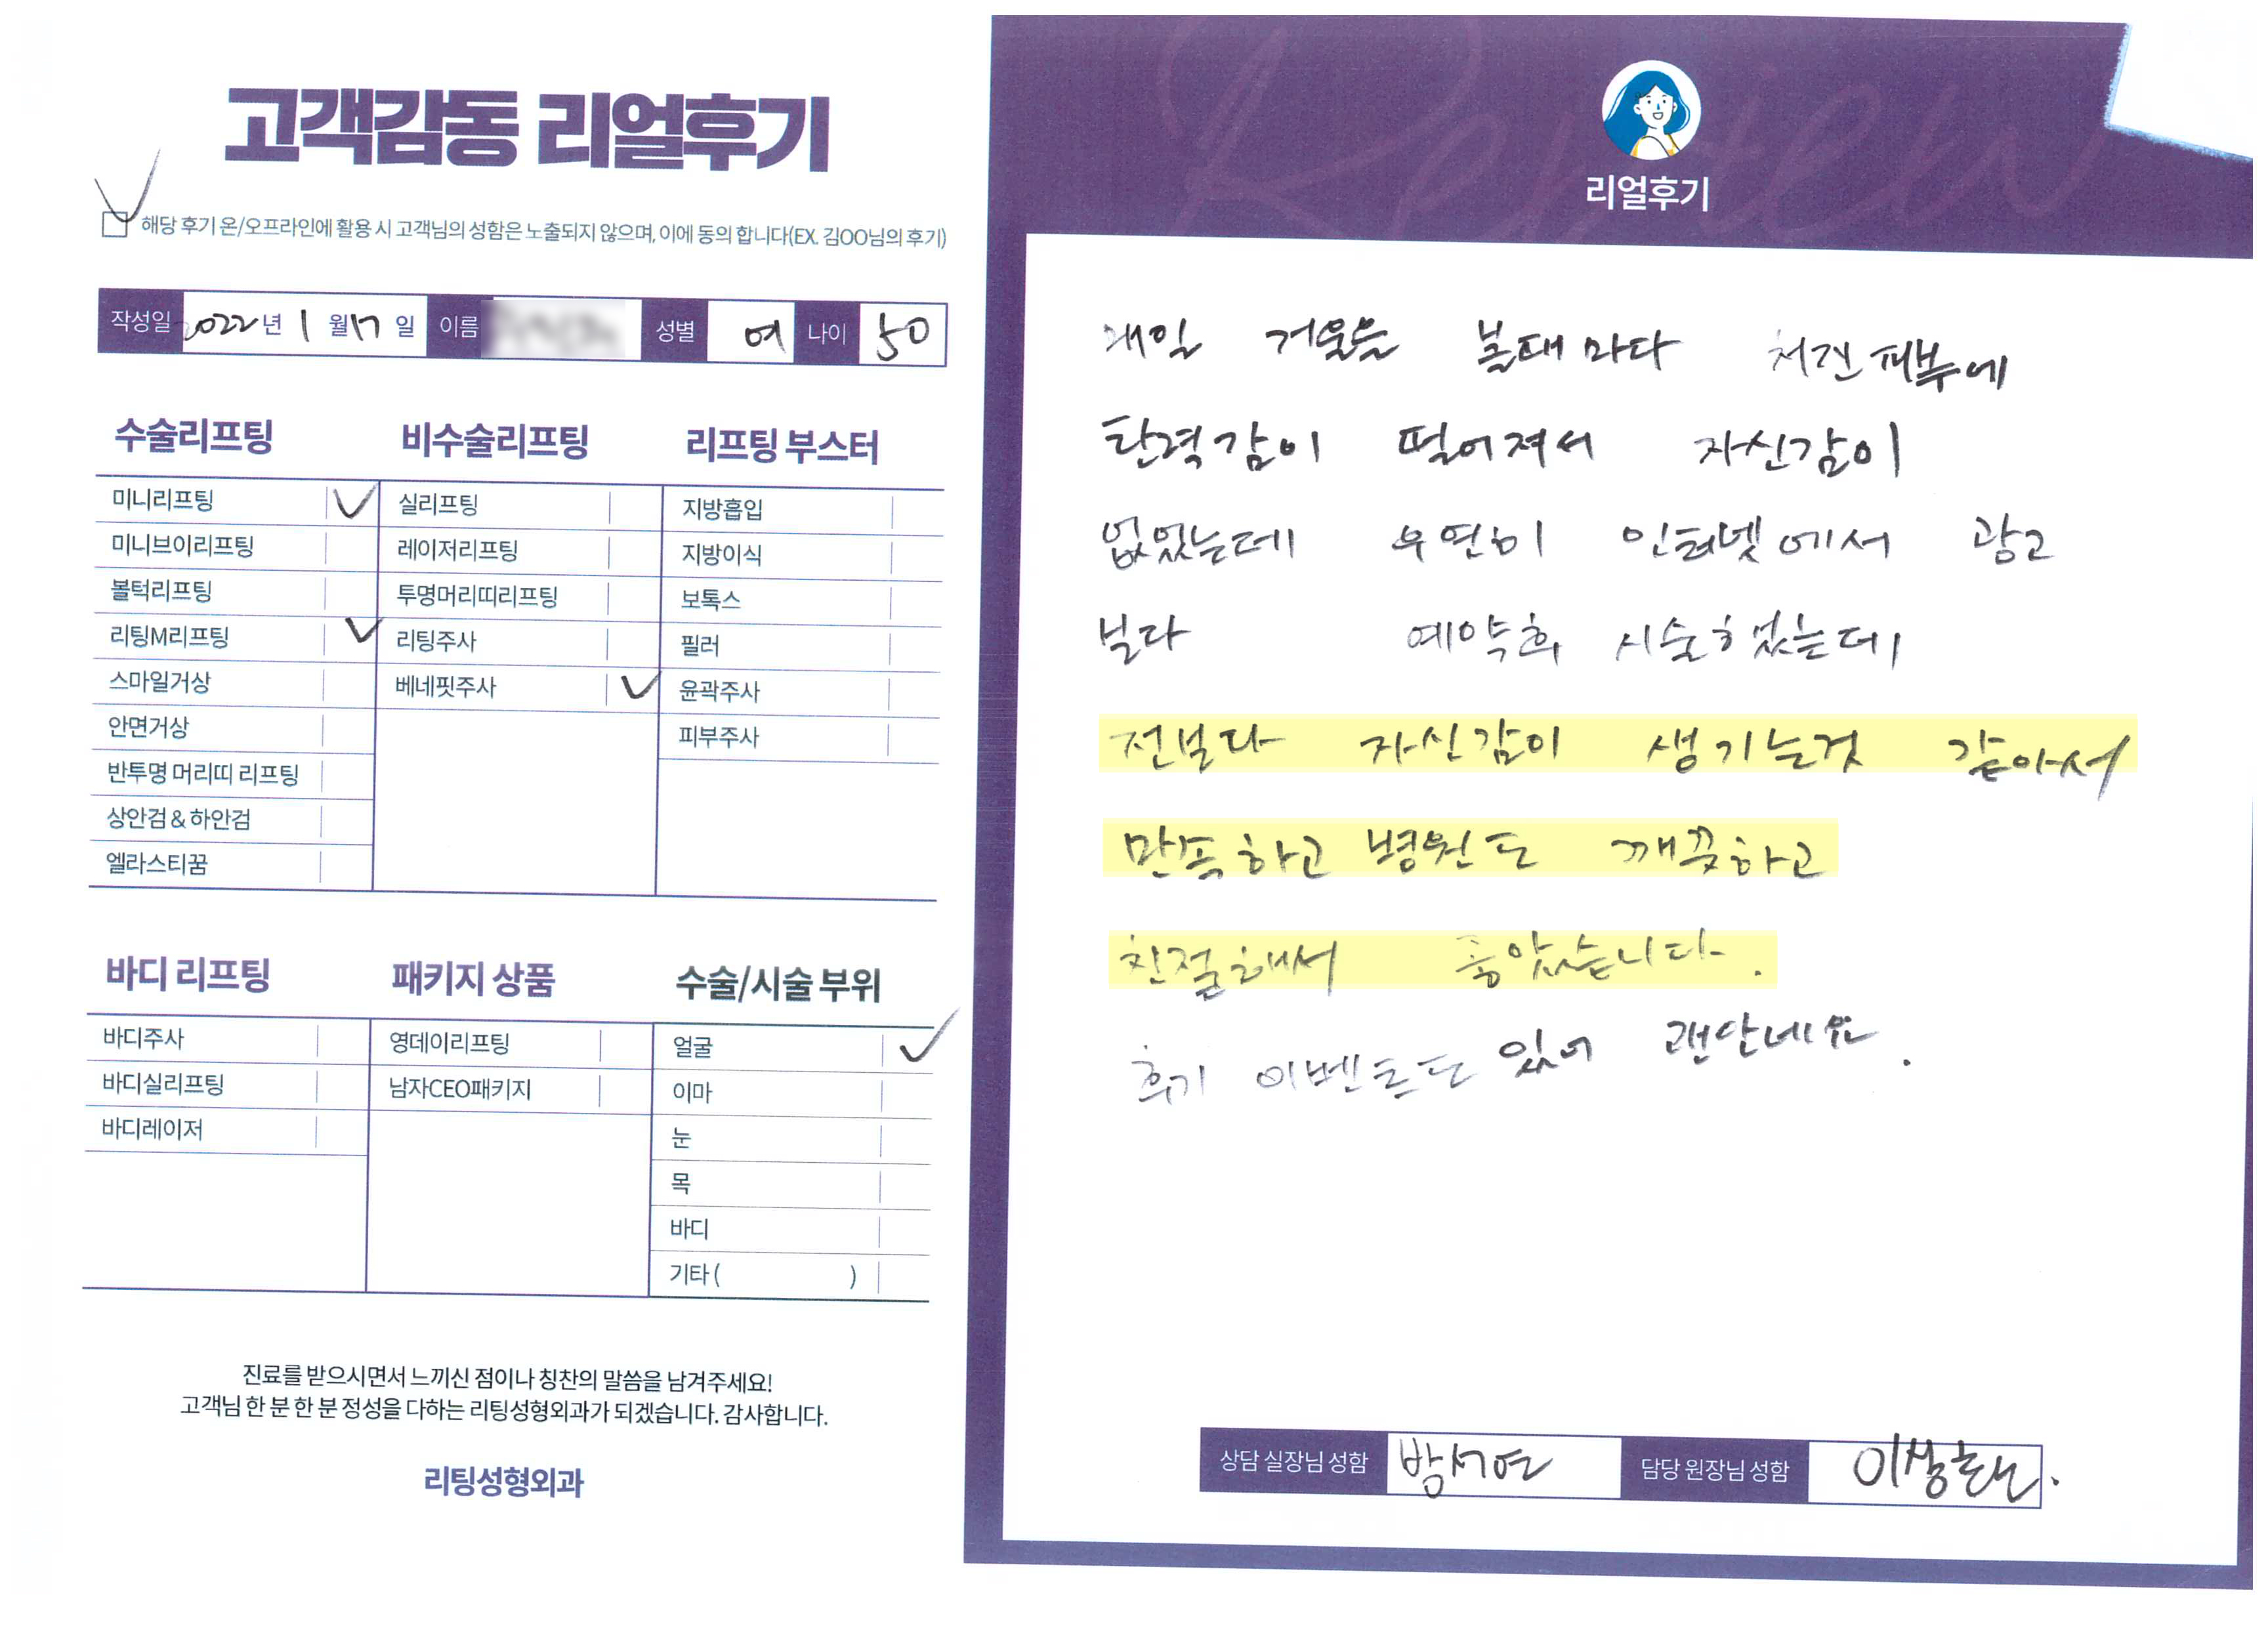 고객감동 리얼후기
해당 후기 온/오프라인에 활용 시 고객님의 성함은 노출되지 않으며, 이에 동의 합니다(EX. 김OO님의 후기)
작성일 2022년 1월 17일 이름 성별 여 나이 50
수술리프팅
미니리프팅
미니브이리프팅
볼턱리프팅
리팅M리프팅
스마일거상
안면거상
반투명 머리띠 리프팅
상안검 & 하안검
엘라스티꿈
비수술리프팅
실리프팅
레이저리프팅
투명머리띠리프팅
리팅주사
베네핏주사
리프팅 부스터
지방흡입
지방이식
보톡스
필러
윤곽주사
피부주사
바디 리프팅
바디주사
바디실리프팅
바디레이저
패키지 상품
영데이리프팅
남자CEO패키지
수술/시술 부위
얼굴
이마
눈
목
바디
기타 ( )
진료를 받으시면서 느끼신 점이나 칭찬의 말씀을 남겨주세요!
고객님 한 분 한 분 정성을 다하는 리팅성형외과가 되겠습니다. 감사합니다.
리팅성형외과
Review
리얼후기
매일 거울을 볼때마다 처진 피부에
탄력감이 떨어져서 자신감이
없었는데 우연히 인터넷에서 광고
보다 예약후 시술하였는데
전보다 자신감이 생기는것 같아서
만족하고 병원도 깨끗하고
친절해서 좋았습니다.
후기 이벤트도 있어 괜찮네요.
상담 실장님 성함 박서연 담당 원장님 성함